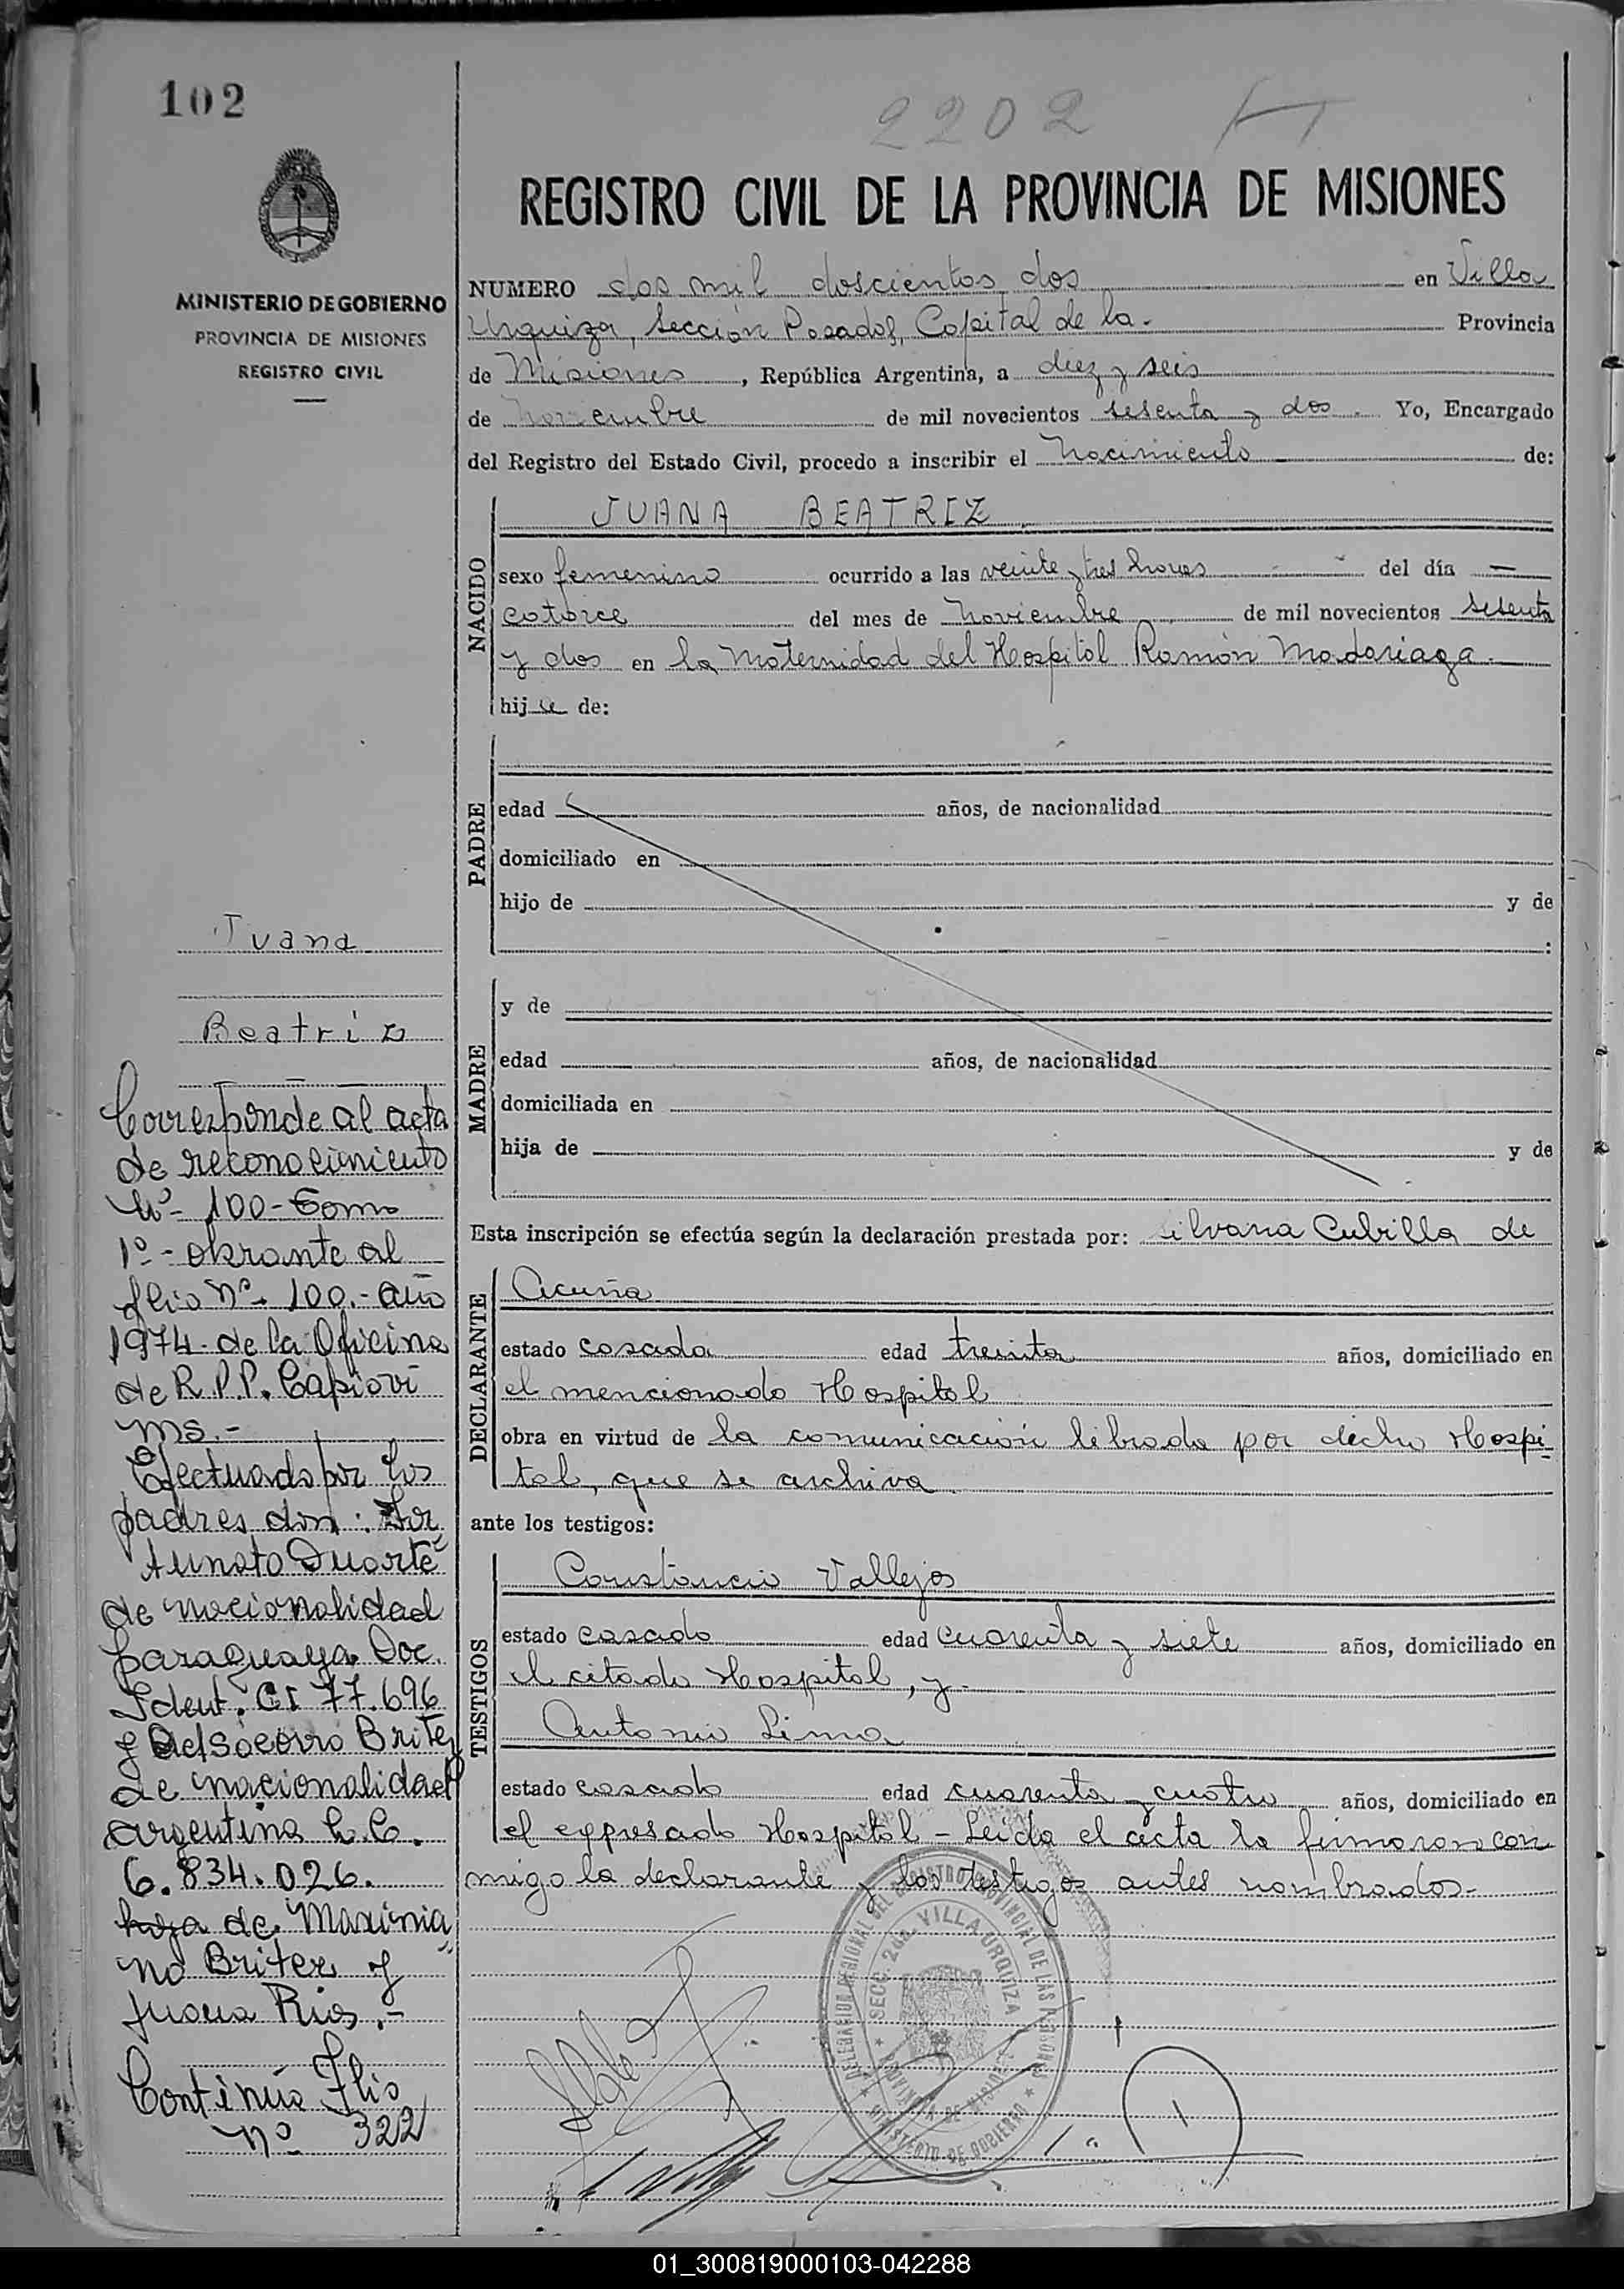 102
2202
MINISTERIO DE GOBIERNO
PROVINCIA DE MISIONES
REGISTRO CIVIL
REGISTRO CIVIL DE LA PROVINCIA DE MISIONES
NUMERO dos mil doscientos dos en Villa
Urquiza, Sección Posadas, Capital de la.- Provincia
de Misiones, República Argentina, a diez y seis
de noviembre de mil novecientos sesenta y dos. Yo, Encargado
del Registro del Estado Civil, procedo a inscribir el Nacimiento de:
NACIDO
JUANA BEATRIZ
sexo femenino ocurrido a las veinte y tres horas del día —
catorce del mes de noviembre de mil novecientos sesenta
y dos en la Maternidad del Hospital Ramón Madariaga.
hija de:
PADRE
edad años, de nacionalidad
domiciliado en
hijo de y de
:
MADRE
y de
edad años, de nacionalidad
domiciliada en
hija de y de
Esta inscripción se efectúa según la declaración prestada por: Silvana Cubilla de
DECLARANTE
Acuña
estado casada edad treinta años, domiciliado en
el mencionado Hospital
obra en virtud de la comunicación librada por dicho Hospi-
tal, que se archiva
ante los testigos:
TESTIGOS
Constancio Vallejos
estado casado edad cuarenta y siete años, domiciliado en
el citado Hospital, y.
Antonio Lima
estado casado edad cuarenta y cuatro años, domiciliado en
el expresado Hospital - Leida el acta la firmaron con
migo la declarante y los testigos antes nombrados.-
Juana
Beatriz
Corresponde al acta
de reconocimiento
Nº- 100- Tomo
1º- obrante al
folio nº. 100.- año
1974. de la Oficina
de R.P.P. Capiovi
Ms.-
Efectuado por los
padres don:
Duarte
de nacionalidad
paraguaya. Doc.
Ident. CI 77.696
y Delsocorro Britez
de nacionalidad
argentina L.C.
6.834.026.
hija de Maximia
no Britez y
Juana Rios.-
Continúa Flio
nº 322
DELEGACION REGIONAL DEL REGISTRO PROVINCIAL DE LAS PERSONAS
SECC. 2da. VILLA URQUIZA
PROVINCIA DE MISIONES
MINISTERIO DE GOBIERNO
01_300819000103-042288